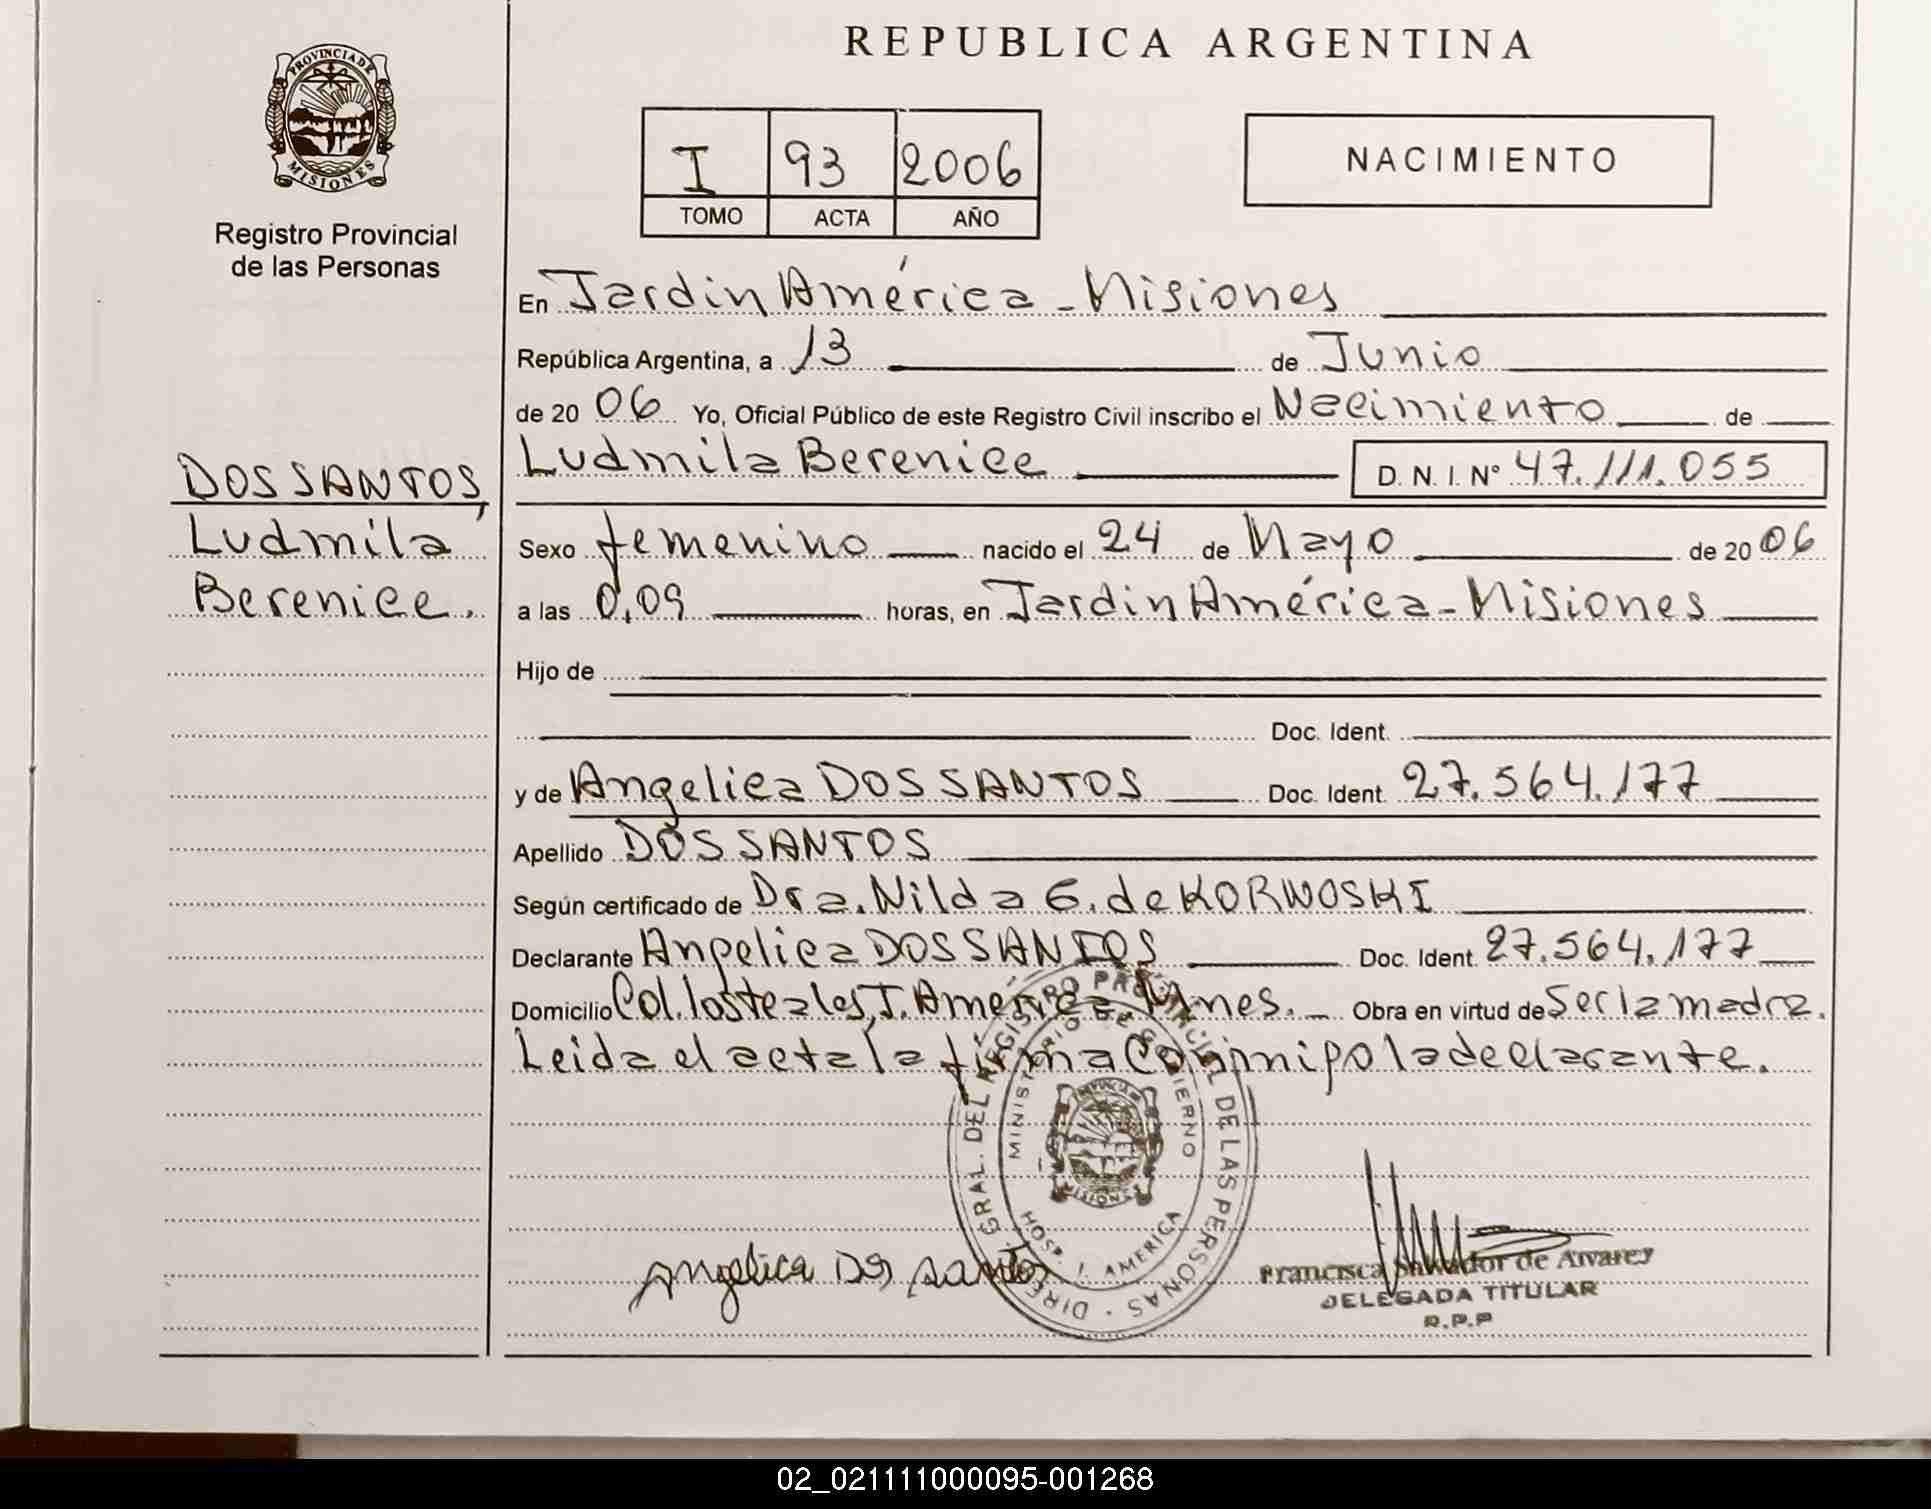 REPUBLICA ARGENTINA
PROVINCIA DE
MISIONES
Registro Provincial
de las Personas
I 93 2006
TOMO ACTA AÑO
NACIMIENTO
En Jardin América - Misiones
República Argentina, a 13 de Junio
de 20 06 Yo, Oficial Público de este Registro Civil inscribo el Nacimiento de
Ludmila Berenice D. N. I. Nº 47.111.055
DOS SANTOS,
Ludmila
Berenice.
Sexo femenino nacido el 24 de Mayo de 20 06
a las 0,09 horas, en Jardin América - Misiones
Hijo de
Doc. Ident.
y de Angelica DOS SANTOS Doc. Ident. 27.564.177
Apellido DOS SANTOS
Según certificado de Dra. Nilda G. de KORNOSKI
Declarante Angelica DOS SANTOS Doc. Ident. 27.564.177
Domicilio Col. los teales, J. America, Mnes. Obra en virtud de Ser la madre.
Leida el acta la firma Conmipo la declarante.
DIREC. GRAL. DEL REGISTRO PROVINCIAL DE LAS PERSONAS
MINISTERIO DE GOBIERNO
MISIONES
HOSP. J. AMERICA
Angelica Dos Santos
Francisca Salvador de Alvarez
DELEGADA TITULAR
R.P.P
02_021111000095-001268